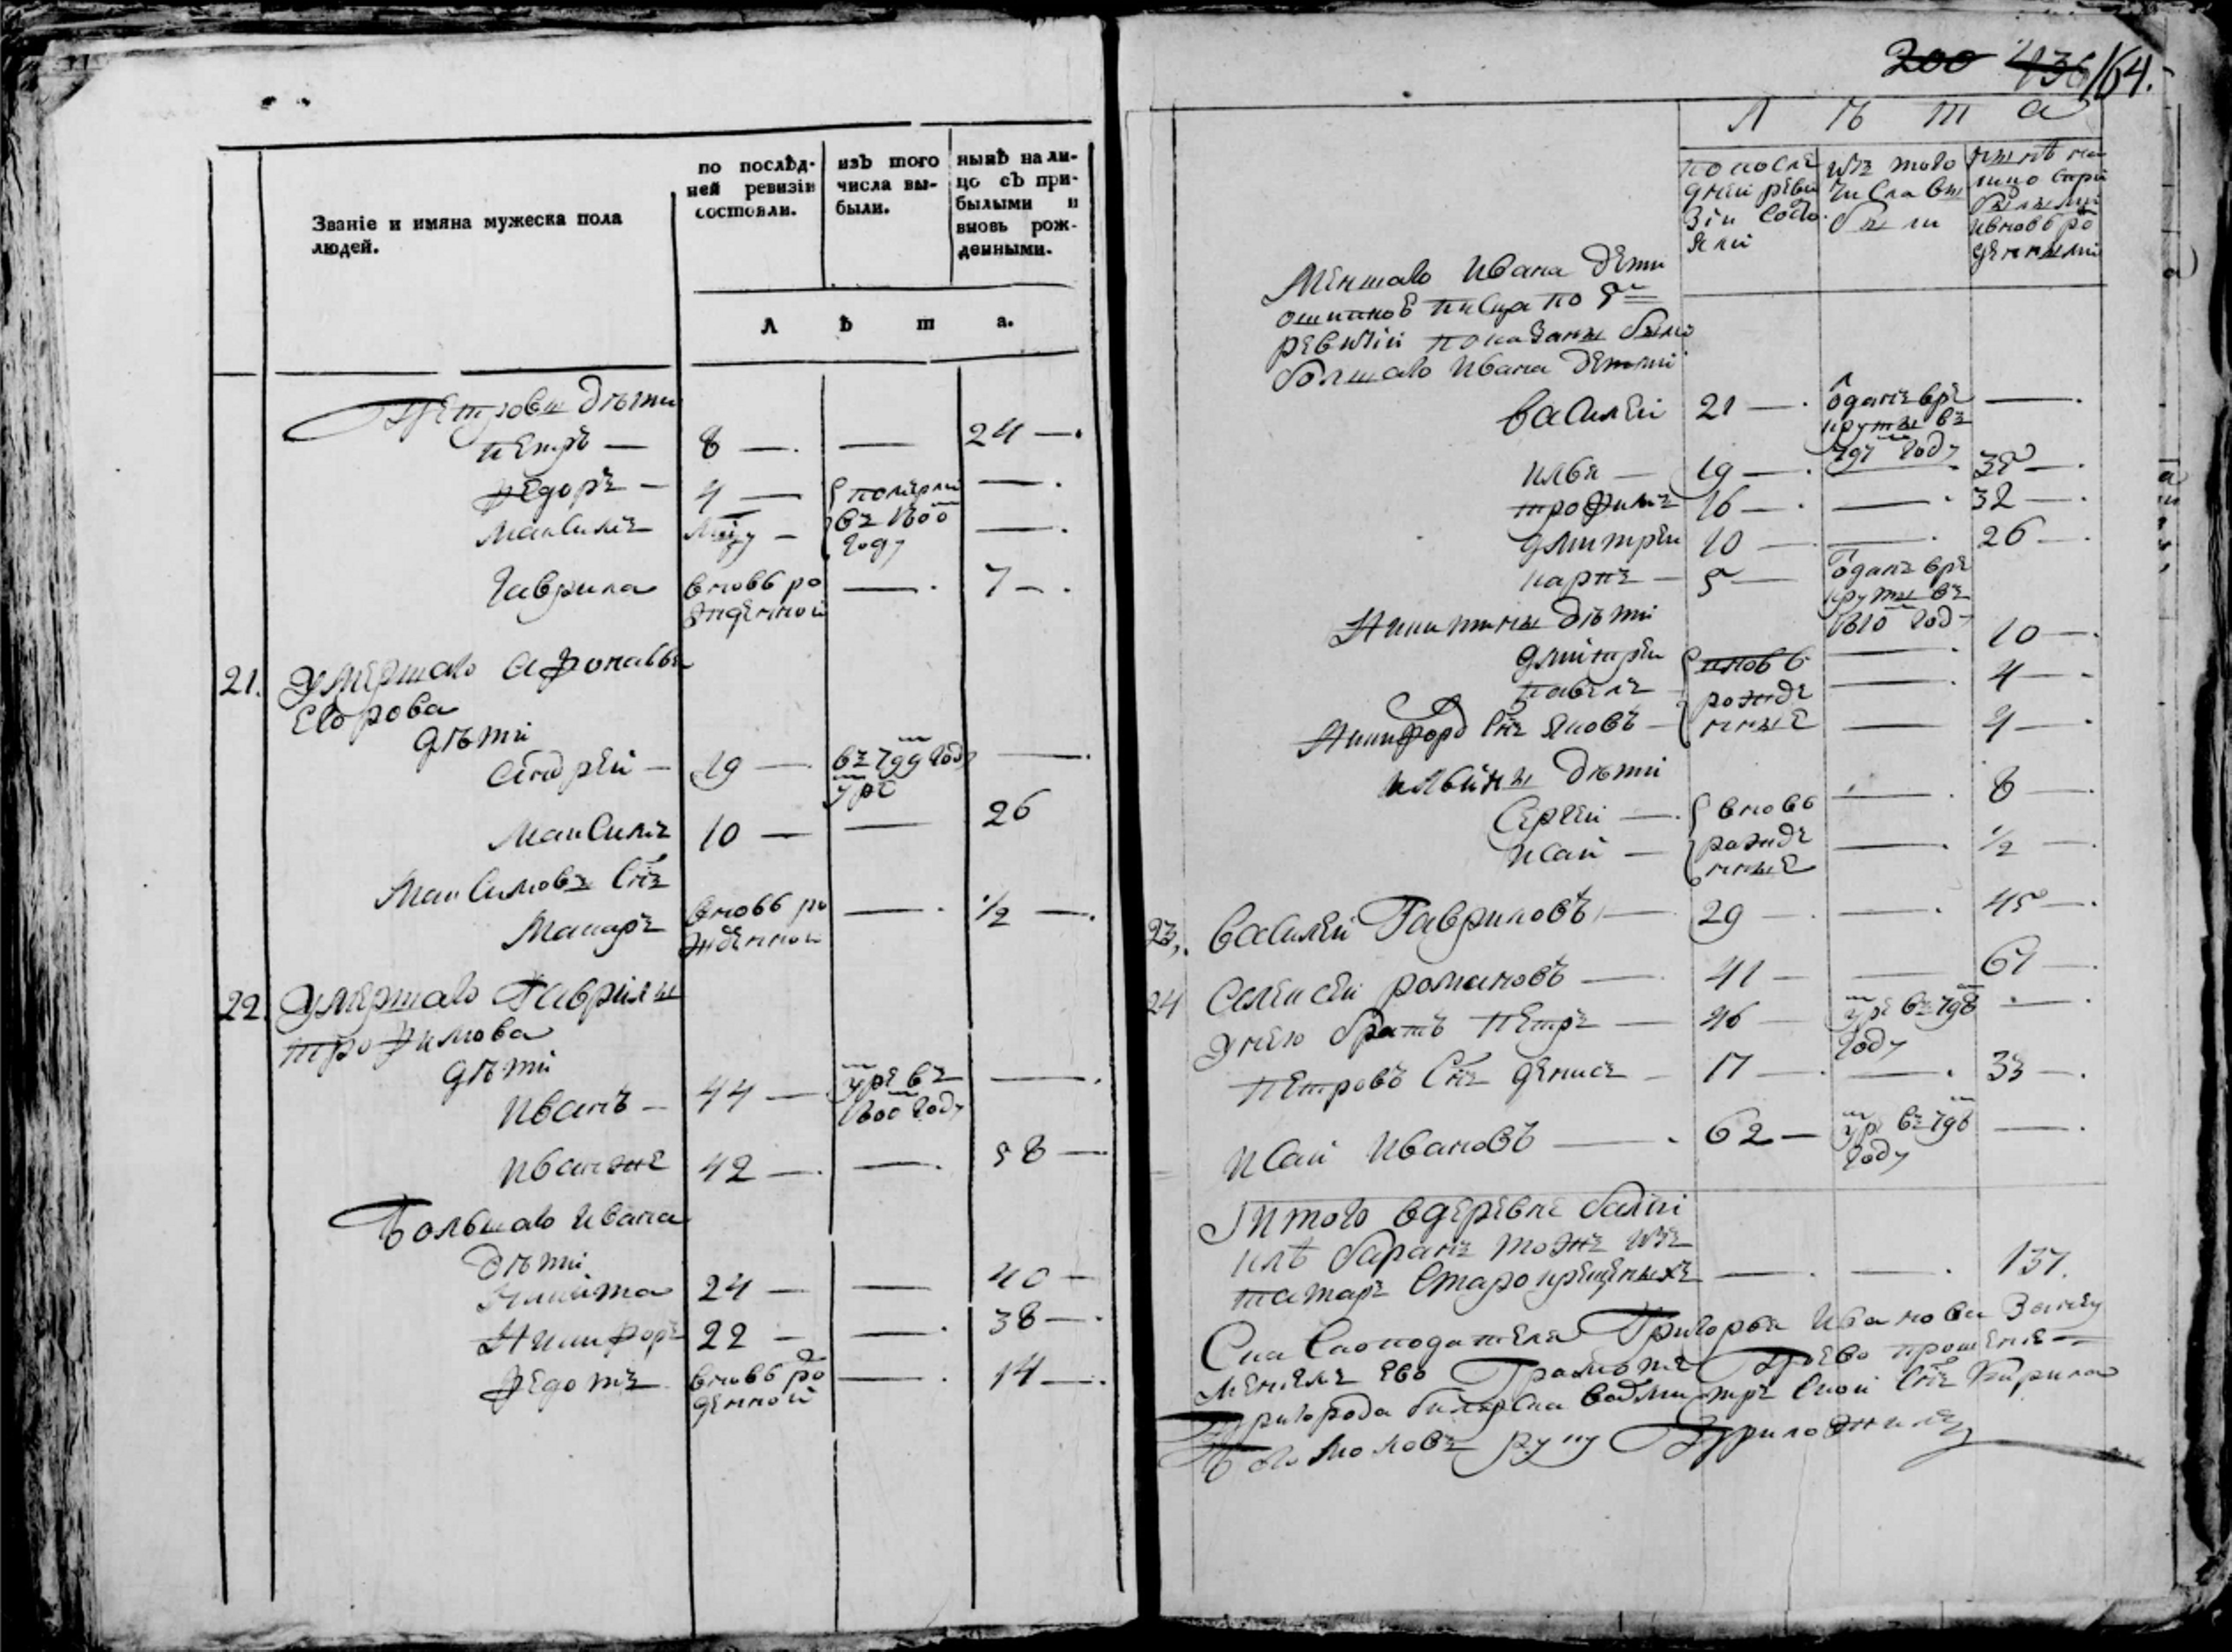 Званіе и имяна мужеска пола
людей.
по послѣд-
ней ревизіи
состояли.
изъ того
числа вы-
были.
нынѣ на ли-
цо съ при-
былыми и
вновь рож-
денными.
Л ѣ т а.
Петровы дѣти
Петръ — 8 — — 24 —
Федоръ — 4 — померли —
Максимъ — въ 1800 —
году
Гаврила вновь ро — 7 —
жденной
21. Умершаго Афонасья
Егорова
дѣти
Андрей — 19 — въ 799 году —
уре
Максимъ 10 — — 26
Максимовъ снъ
Макаръ вновь ро — 1/2 —
жденной
22. Умершаго Гаврилы
трофимова
дѣти
Иванъ — 44 — уре въ —
1800 году
Иванже 42 — — 58 —
Большаго Ивана
дѣти
Никита 24 — — 40 —
Никифоръ 22 — — 38 —
Федотъ вновь ро — 14 —
жденной
200 236 164.
Л ѣ т а
по после
дней реви
зіи состо
яли
изъ того
числа вы
были
нынѣ на
лицо спри
былыми
ивновь ро
жденными
Меншаго Ивана дети
ошипкоб писца по 5й
ревизіи показаны были
болшаго Ивана детми
Василей 21 — отданъ врѣ —
круты въ
797 году
Илья — 19 — — 35 —
трофимъ 16 — — 32 —
дмитрей 10 — — 26 —
карпъ — 5 — отданъ врѣ
круты въ
1810 году
Никитины дѣти
дмитрей вновь — 10 —
павелъ — рожде — 4 —
Никифоръ снъ Яковъ — нные — 4 —
ильины дѣти
Сергей — вновь — 8 —
исай — рожде — 1/2 —
нные
23. Василей Гавриловъ — 29 — — 45 —
24 Алексей романовъ — 41 — — 67 —
Унего братъ Петръ — 46 — уре въ 798 —
году
Петровъ снъ денисъ — 17 — — 33 —
Исай Ивановъ — 62 — уре въ 798 —
году
Итого вдеревне
баранъ тоже изъ
татаръ старокрещеныхъ — — 137.
Григорья Иванова
ево прошенію
Пригорода билярска снъ Кирила
руку приложилъ